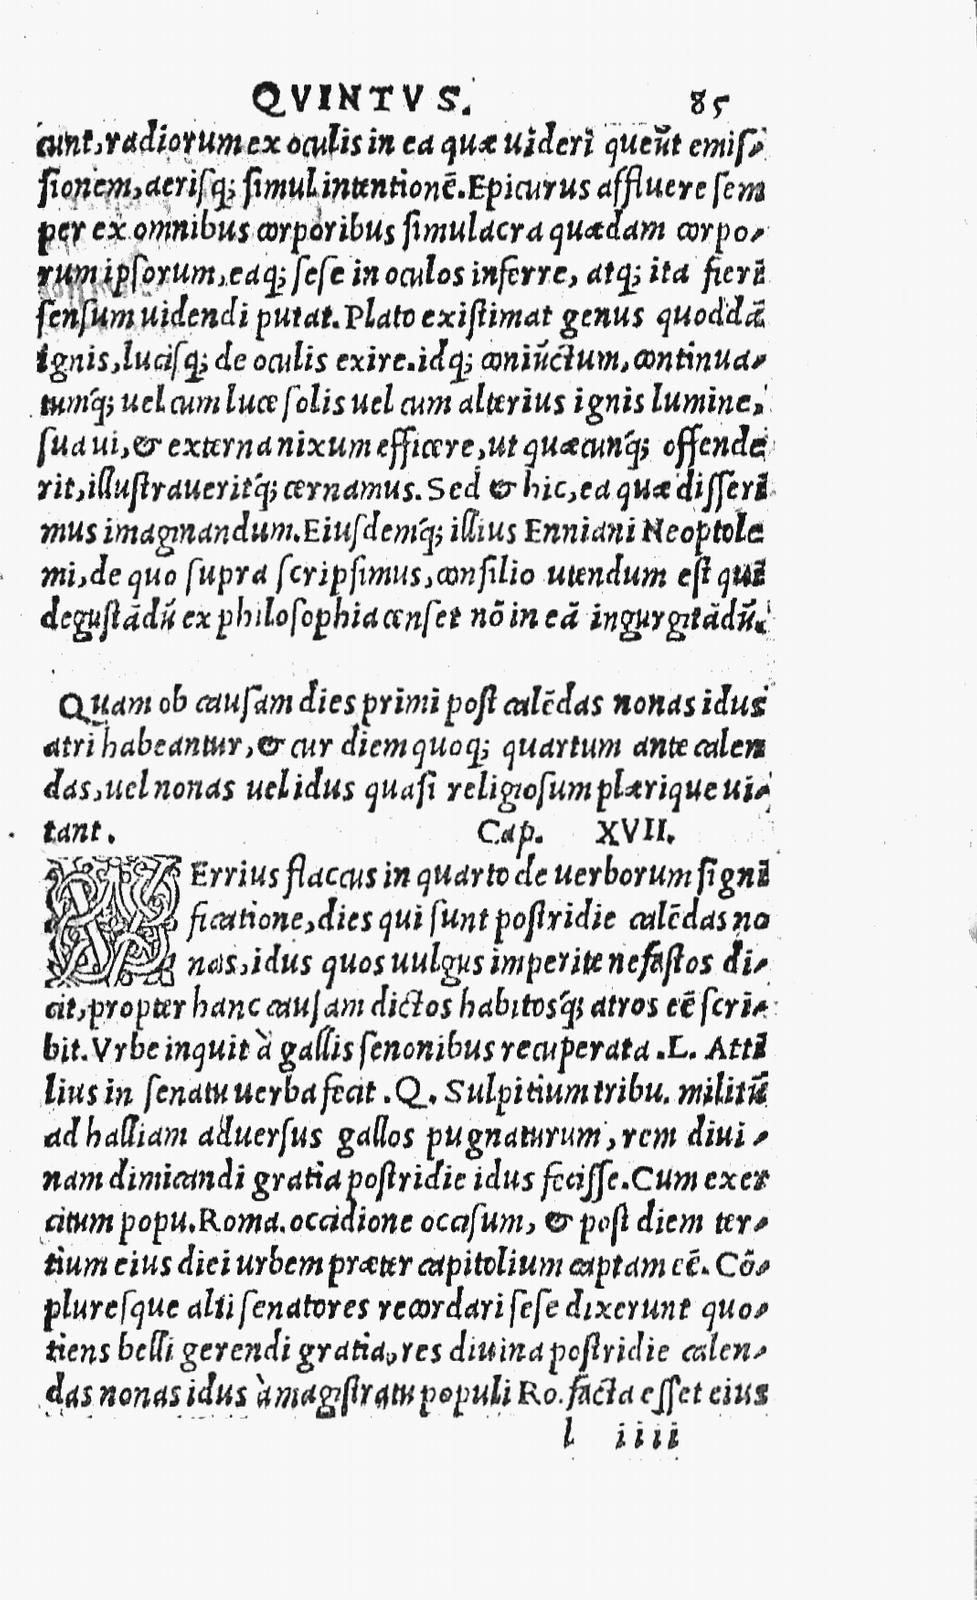 QVINTVS. 85
cunt, radiorum ex oculis in ea quæ uideri queũt emiſ-
ſionem, aeriſq; ſimul intentionẽ. Epicurus affluere ſem
per ex omnibus corporibus ſimulacra quædam corpo-
rum ipſorum, eaq; ſeſe in oculos inferre, atq; ita fieri
ſenſum uidendi putat. Plato exiſtimat genus quoddã
ignis, luciſq; de oculis exire. idq; coniũctum, continua-
tumq́; uel cum luce ſolis uel cum alterius ignis lumine,
ſua ui, & externa nixum efficere, ut quæcunq́; offende
rit, illuſtraueritq́; cernamus. Sed & hic, ea quæ diſſeri
mus imaginandum. Eiuſdemq́; illius Enniani Neoptole
mi, de quo ſupra ſcripſimus, conſilio utendum eſt qui
deguſtãdũ ex philoſophia cenſet nõ in eã ingurgitãdũ.
Quam ob cauſam dies primi poſt calẽdas nonas idus
atri habeantur, & cur diem quoq; quartum ante calen
das, uel nonas uel idus quaſi religioſum plærique ui-
tant. Cap. XVII.
VErrius flaccus in quarto de uerborum ſigni
ficatione, dies qui ſunt poſtridie calẽdas no
nas, idus quos uulgus imperite nefaſtos di-
cit, propter hanc cauſam dictos habitosq́; atros eẽ ſcri-
bit. Vrbe inquit à gallis ſenonibus recuperata. L. Atti
lius in ſenatu uerba fecit. Q. Sulpitium tribu. militũ
ad halliam aduerſus gallos pugnaturum, rem diui-
nam dimicandi gratia poſtridie idus feciſſe. Cum exer
citum popu. Roma. occidione occiſum, & poſt diem ter-
tium eius diei urbem præter capitolium captam eẽ. Cõ-
pluresque alii ſenatores recordari ſeſe dixerunt quo-
tiens belli gerendi gratia, res diuina poſtridie calen-
das nonas idus à magiſtratu populi Ro. facta eſſet eius
l iiii